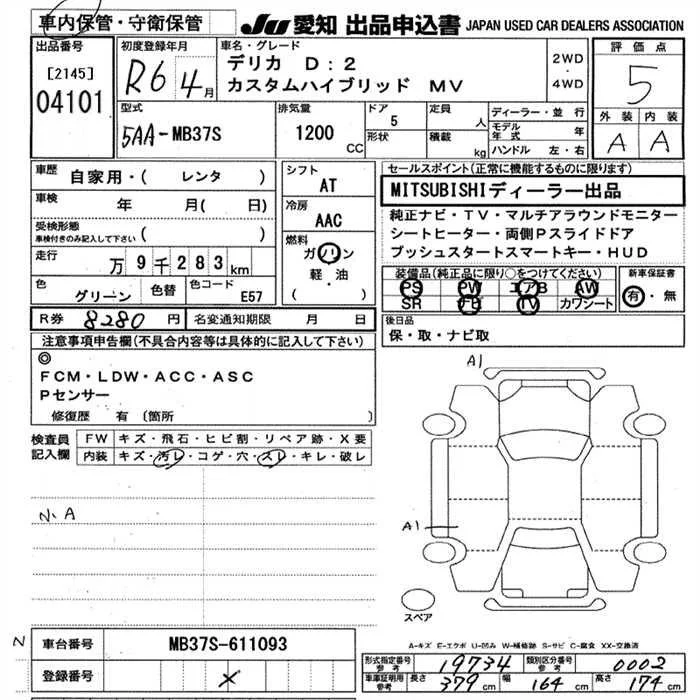 車内保管・守衛保管
JU 愛知 出品申込書 JAPAN USED CAR DEALERS ASSOCIATION
出品番号
[2145]
04101
初度登録年月
R6 4月
車名・グレード
デリカ D:2
カスタムハイブリッド MV
2WD
・
4WD
評価点
5
外装 内装
A A
型式
5AA-MB37S
排気量
1200 CC
ドア
5
形状
定員
人
積載
kg
ディーラー・並行
モデル年式 年
ハンドル 左・右
車歴
自家用・( レンタ )
車検
年 月( 日)
受検形態
車検付きのみ記入して下さい ( )
走行
万9千283km
色
グリーン
色替
色コード
E57
シフト
AT
冷房
AAC
燃料
ガソリン
軽・油
( )
セールスポイント(正常に機能するものに限ります)
MITSUBISHIディーラー出品
純正ナビ・TV・マルチアラウンドモニター
シートヒーター・両側Pスライドドア
プッシュスタートスマートキー・HUD
装備品(純正品に限り○をつけてください)
PS PW エアB AW
SR ナビ TV カワシート
新車保証書
有・無
R券 8280円 名変通知期限 月 日
後日品
保・取・ナビ取
注意事項申告欄(不具合内容等は具体的に記入して下さい)
◎
FCM・LDW・ACC・ASC
Pセンサー
修復歴 有 〔箇所 〕
検査員
記入欄
FW キズ・飛石・ヒビ割・リペア跡・X要
内装 キズ・汚レ・コゲ・穴・スレ・キレ・破レ
N.A
A1
A1
スペア
N
車台番号 MB37S-611093
登録番号 X
A-キズ E-エクボ U-凹み W-補修跡 S-サビ C-腐食 XX-交換済
型式指定番号
参考
19734
類別区分番号
参考
0002
車庫証明用
参考
長さ 379cm 幅 164cm 高さ 174cm